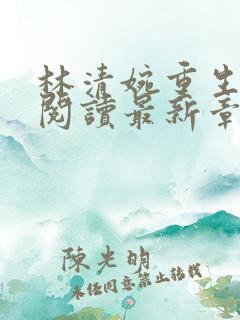 林清婉重生
閱讀最新章
陳光明
未經同意禁止轉載